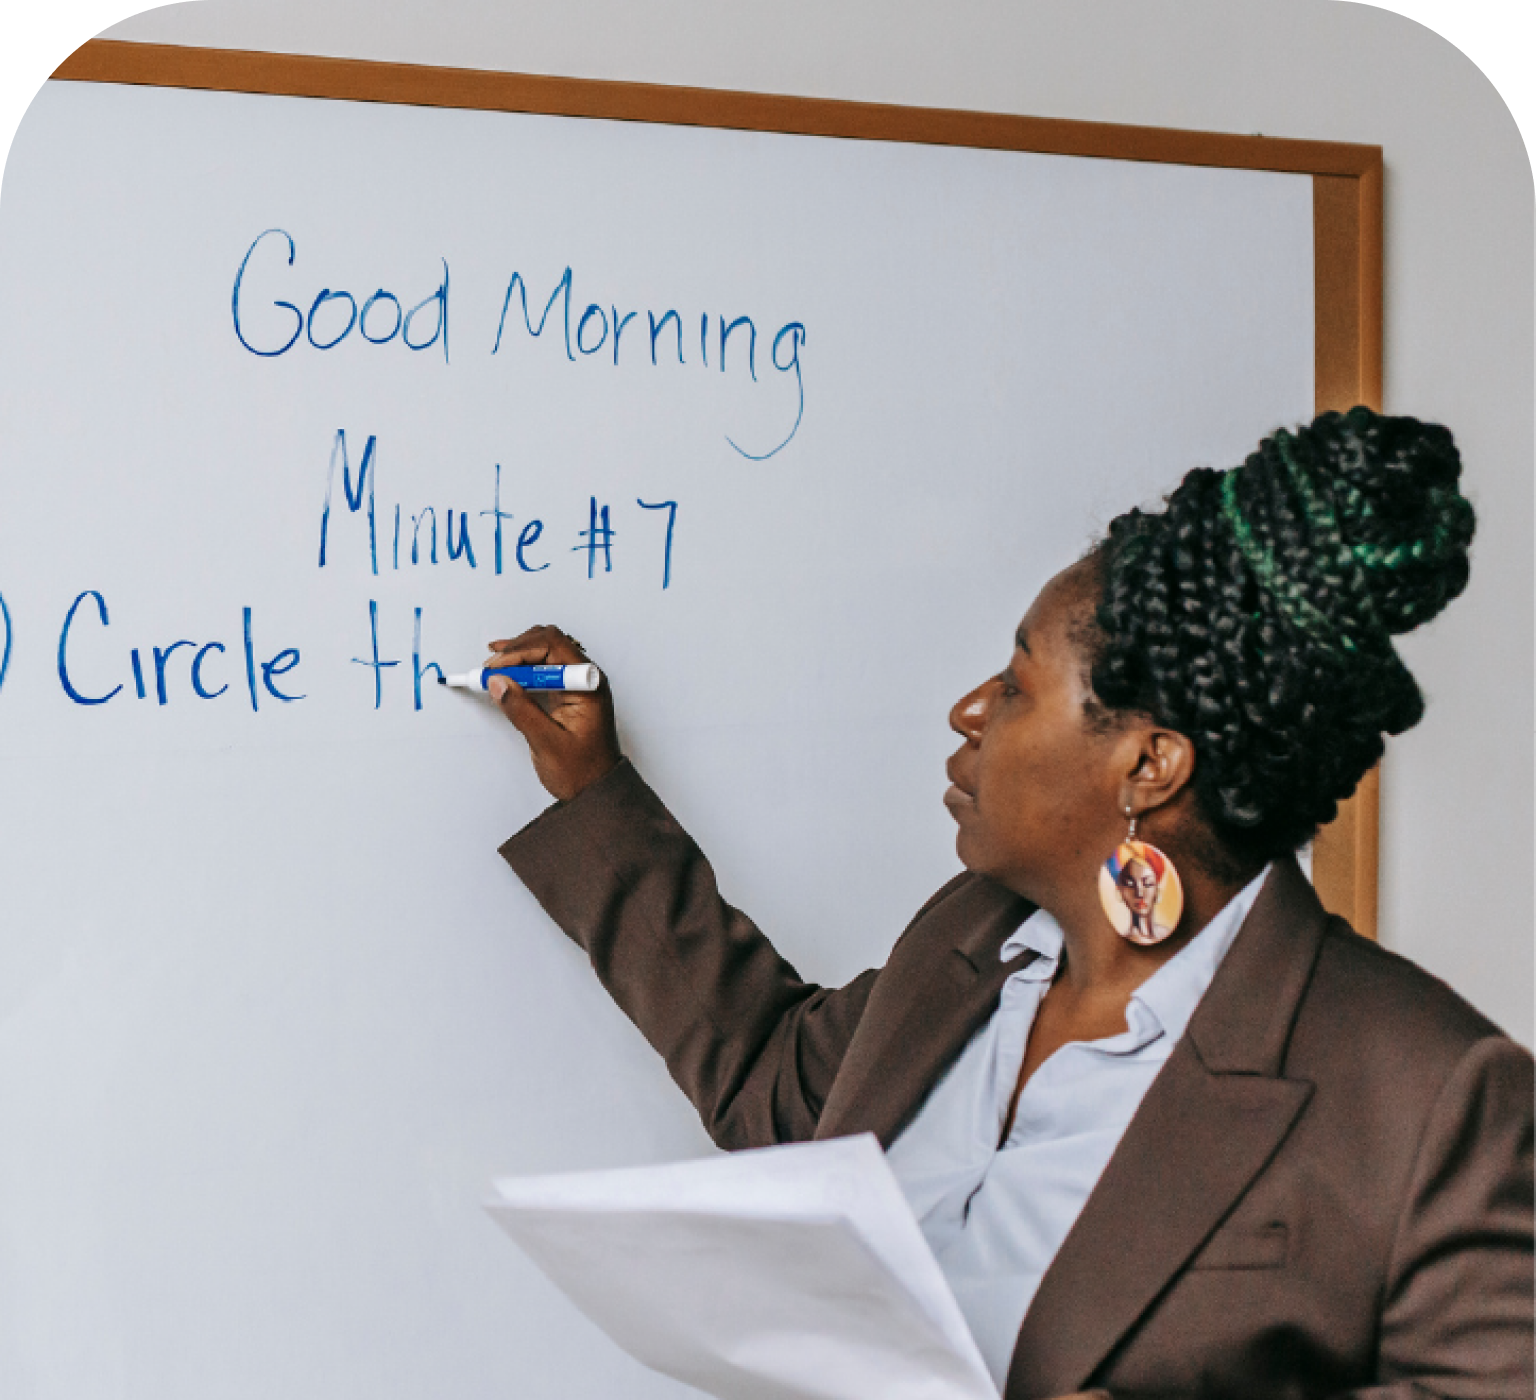 Good Morning
Minute #7
) Circle th